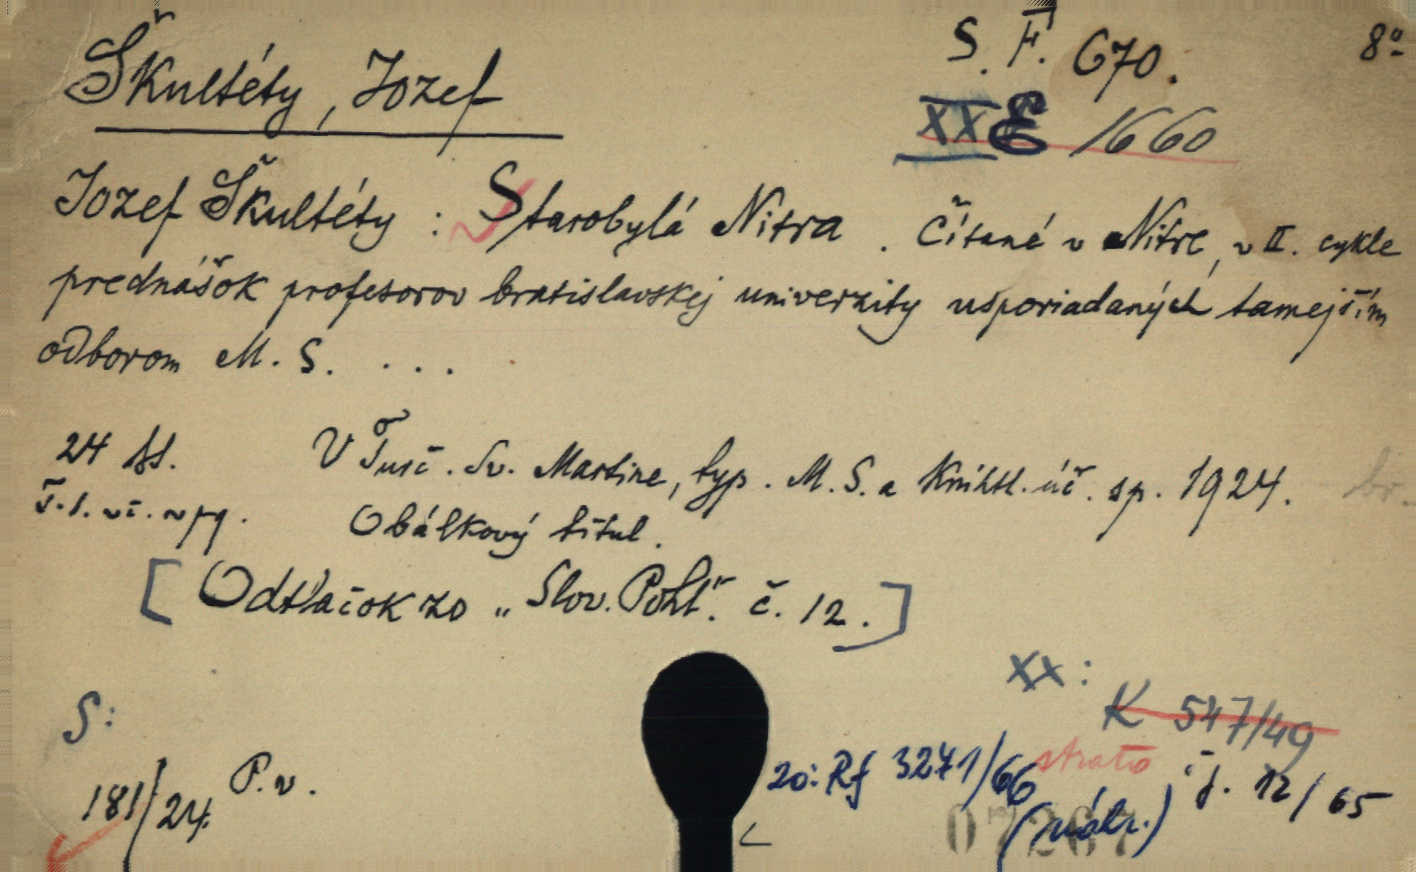 Škultéty, Jozef
S. F. 670.
8º
XX E 1660
Jozef Škultéty : Starobylá Nitra . Čítané v Nitre, v II. cykle
prednášok profesorov bratislavskej univerzity usporiadaných tamejším
odborom M. S. . . .
24 st.
V Turč. Sv. Martine, typ. M. S. a Kníhtl. úč. sp. 1924.
br.
Obálkový titul.
[Odtlačok zo „Slov. Pohľ." č. 12.]
S:
181/24.
P. v.
XX:
K 547/49
strata
č. j. 12/65
20: Rf 3271/66
(náhr.)
07267